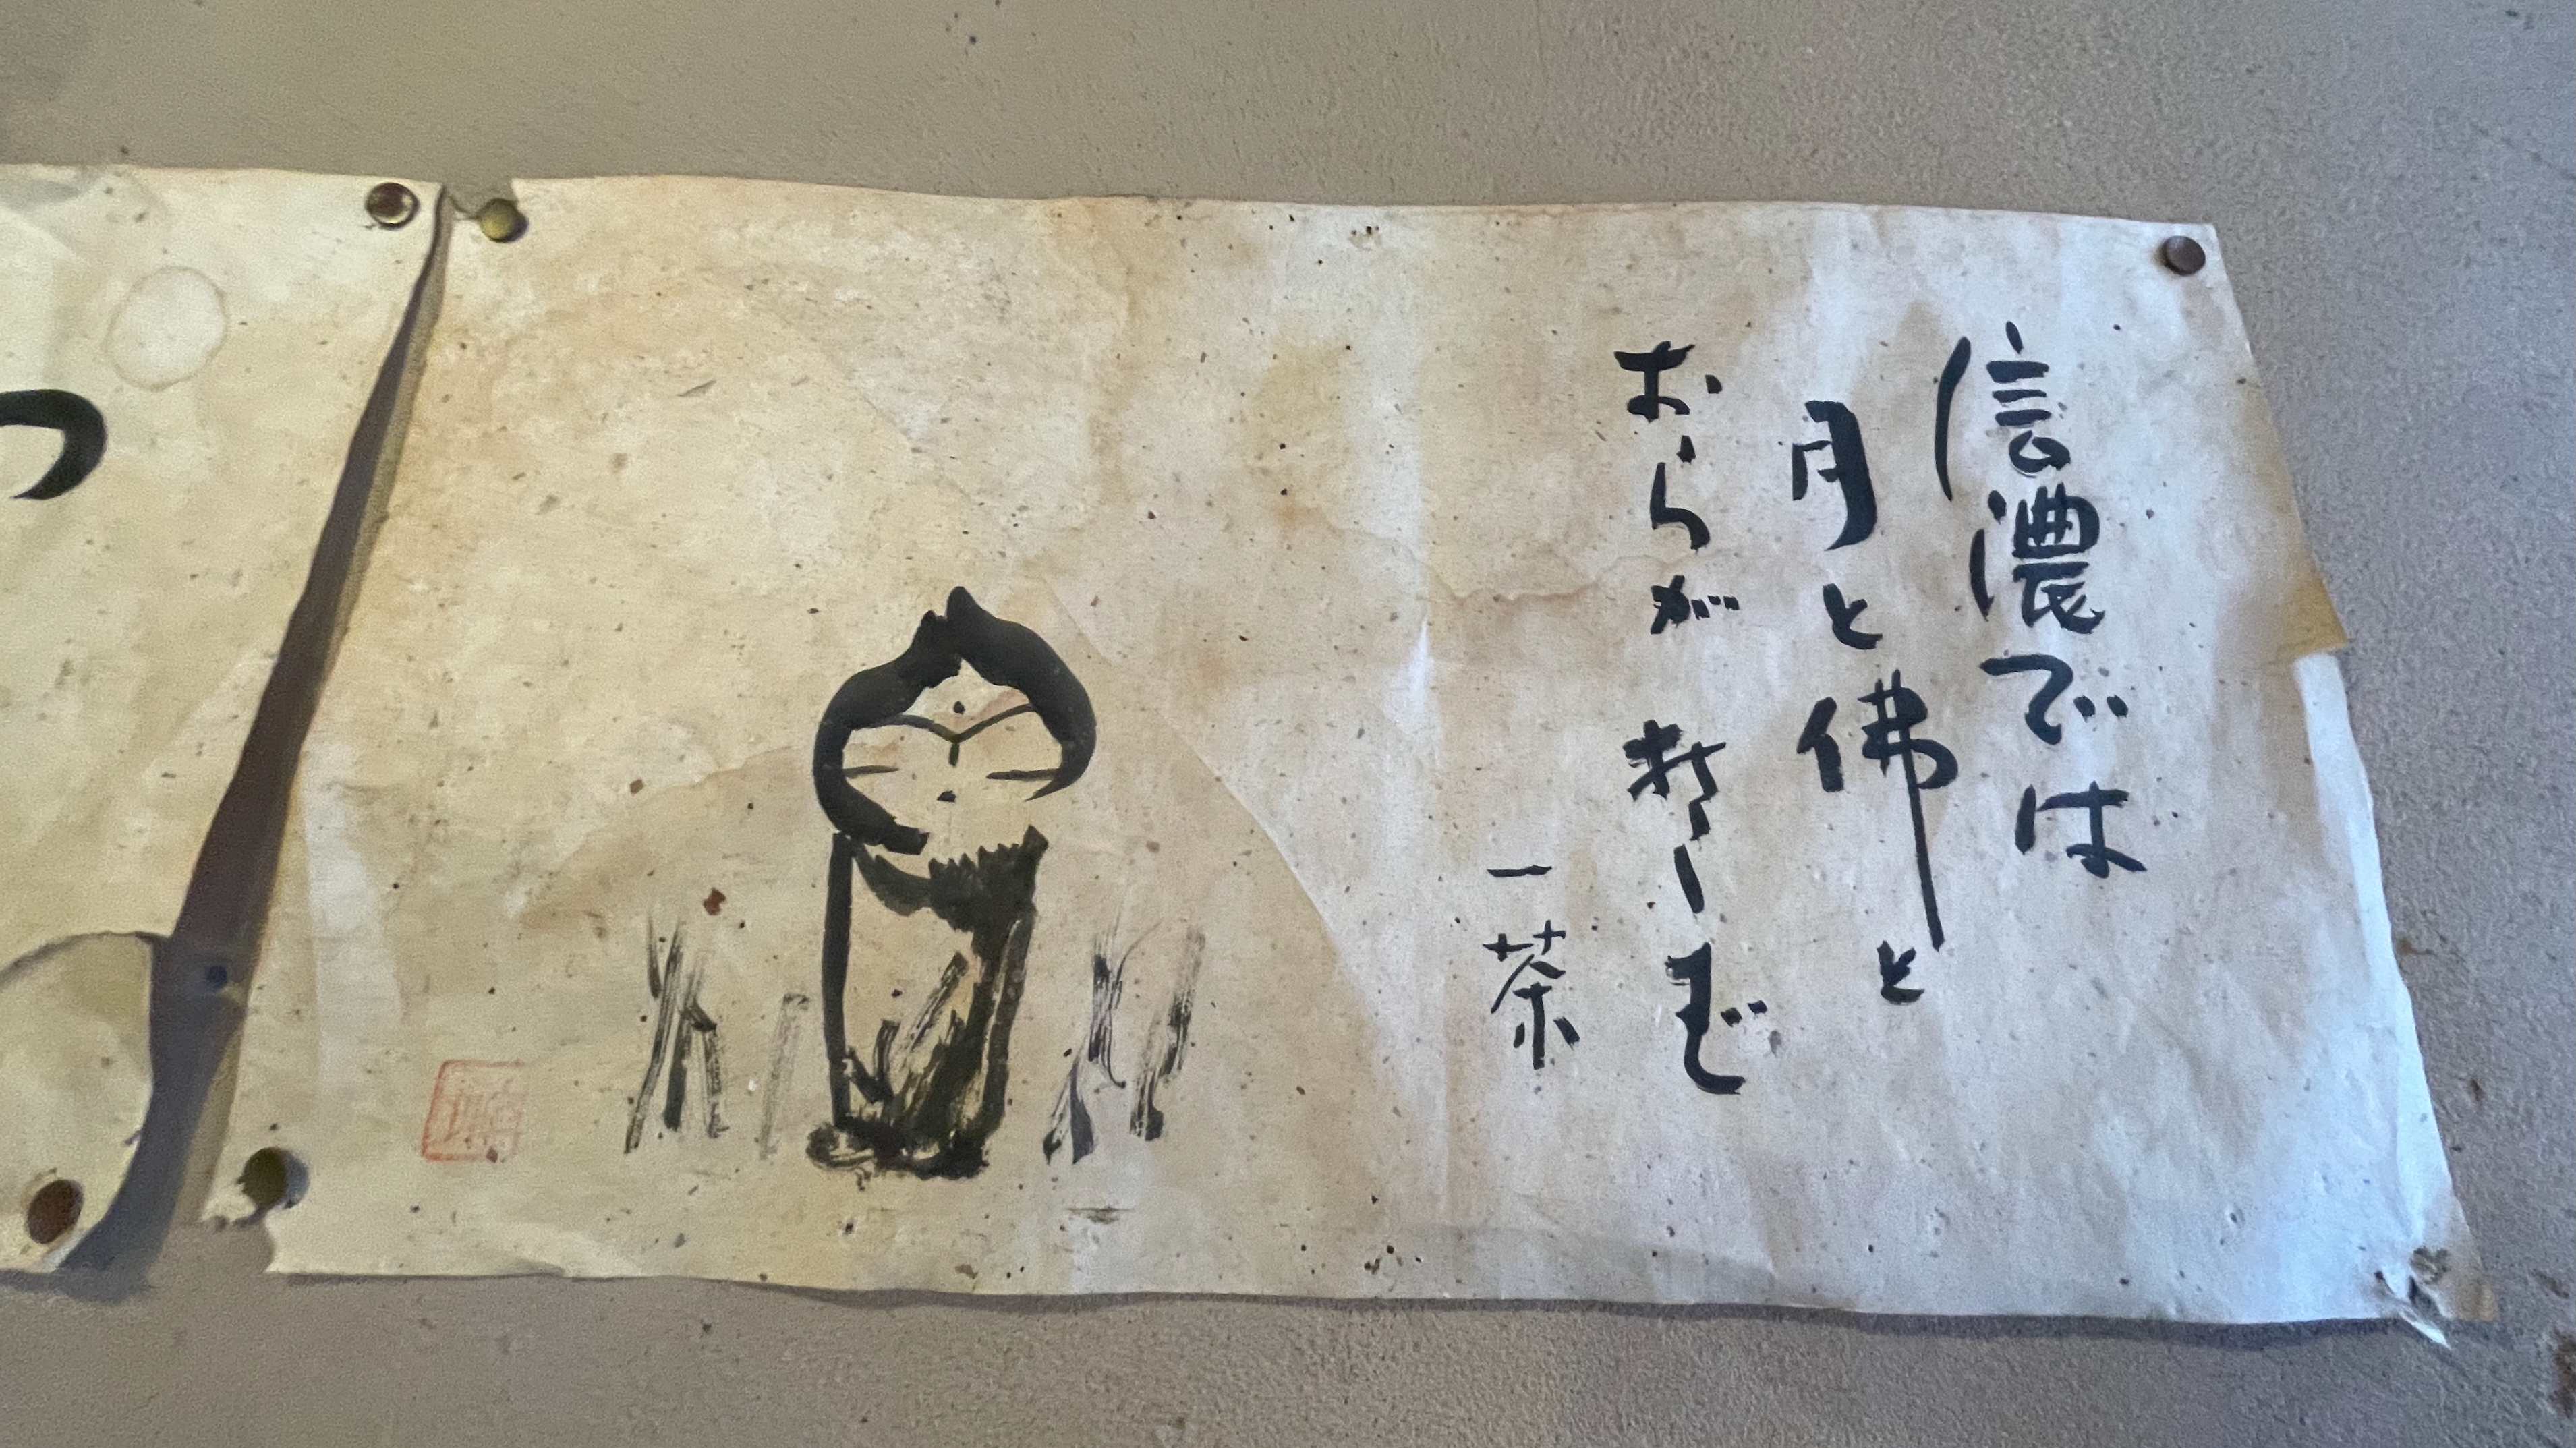 信濃では
月と佛と
おらがおらがそば
一茶